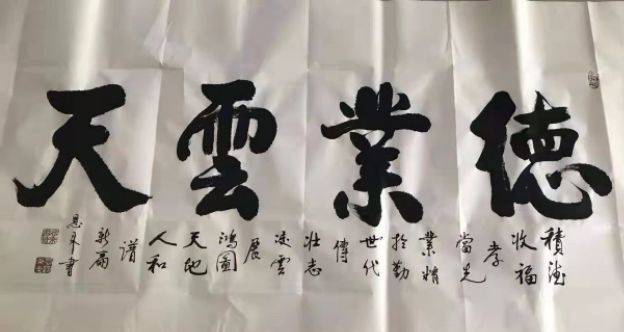 德業雲天
積德
收福
孝
當先
業精
於勤
世代
傳
壯志
凌雲
展
鴻圖
天地
人和
譜
新篇
書